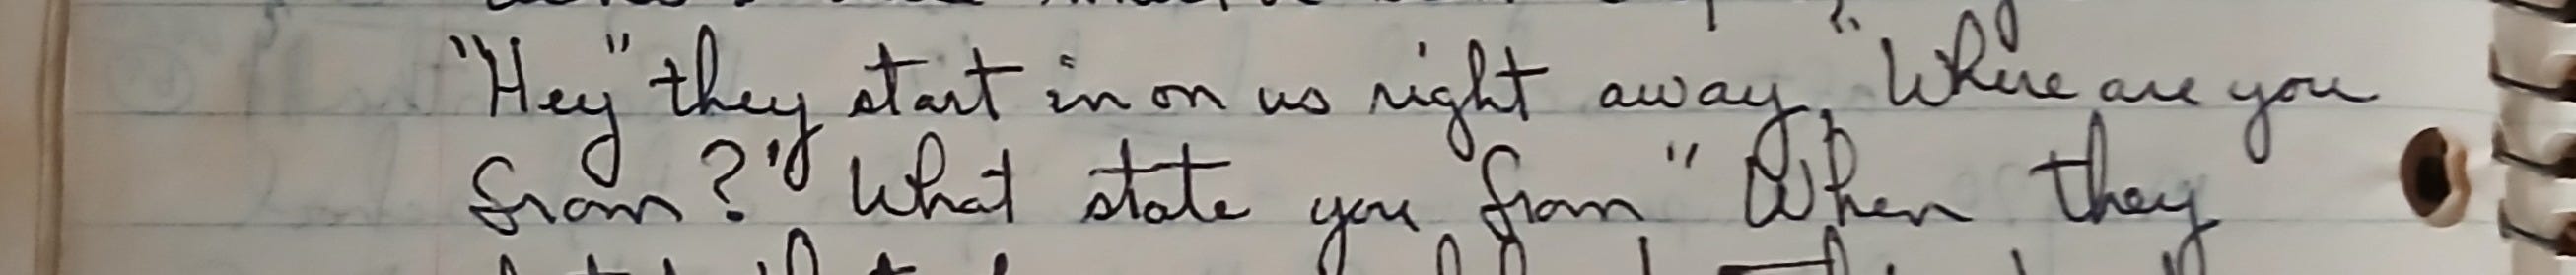 "Hey" they start in on us right away. "Where are you
from?" What state you from" When they